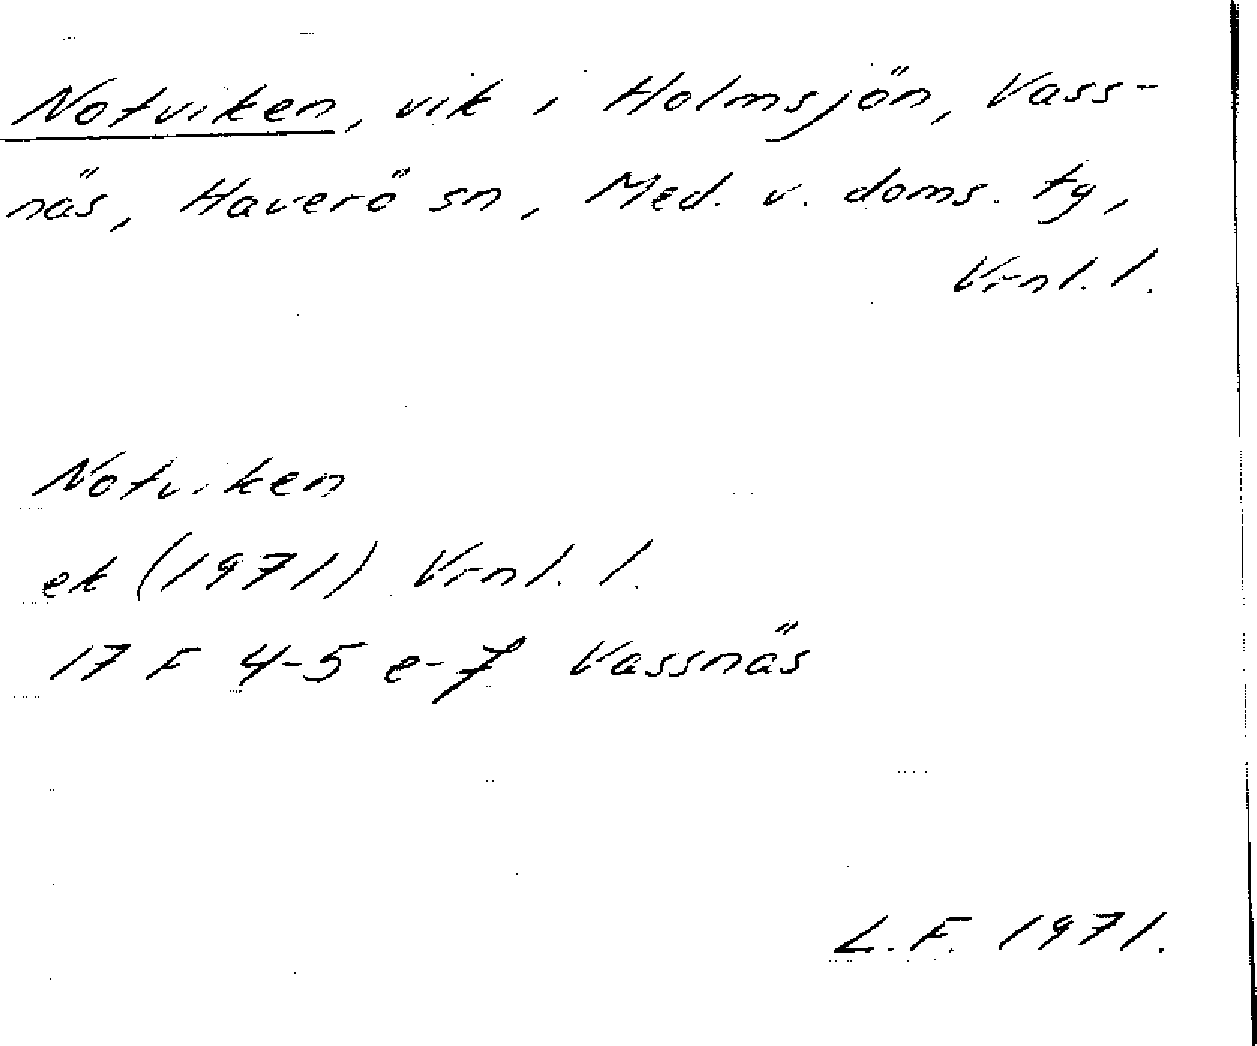 Notviken, vik i Holmsjön, Vass-
näs, Haverö sn, Med. v. doms. tg,
Vrnl. l.
Notviken
ek (1971) Vrnl. l.
17 F 4-5 e-f Vassnäs
L.F. 1971.